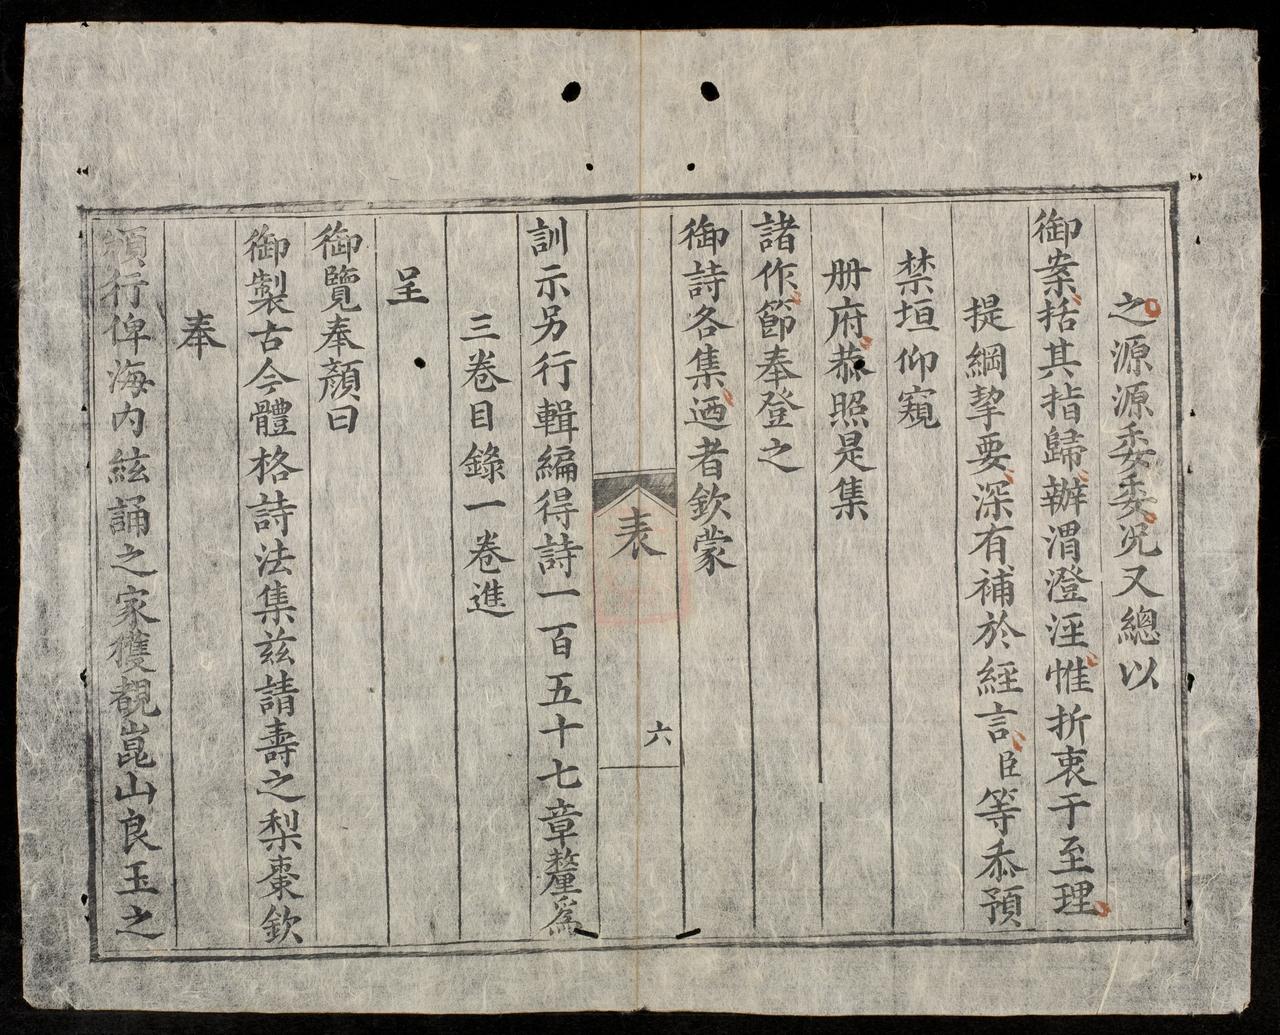 之源源委委况又總以
御案括其指歸辦渭澄涇惟折衷于至理
提綱挈要深有補於經言臣等忝預
禁垣仰窺
册府恭照是集
諸作節奉登之
御詩各集迺者欽蒙
表
六
訓示另行輯編得詩一百五十七章釐爲
三卷目錄一卷進
呈
御覽奉顏曰
御製古今體格詩法集兹請壽之梨棗欽
奉
頒行俾海内絃誦之家獲覩崑山良玉之